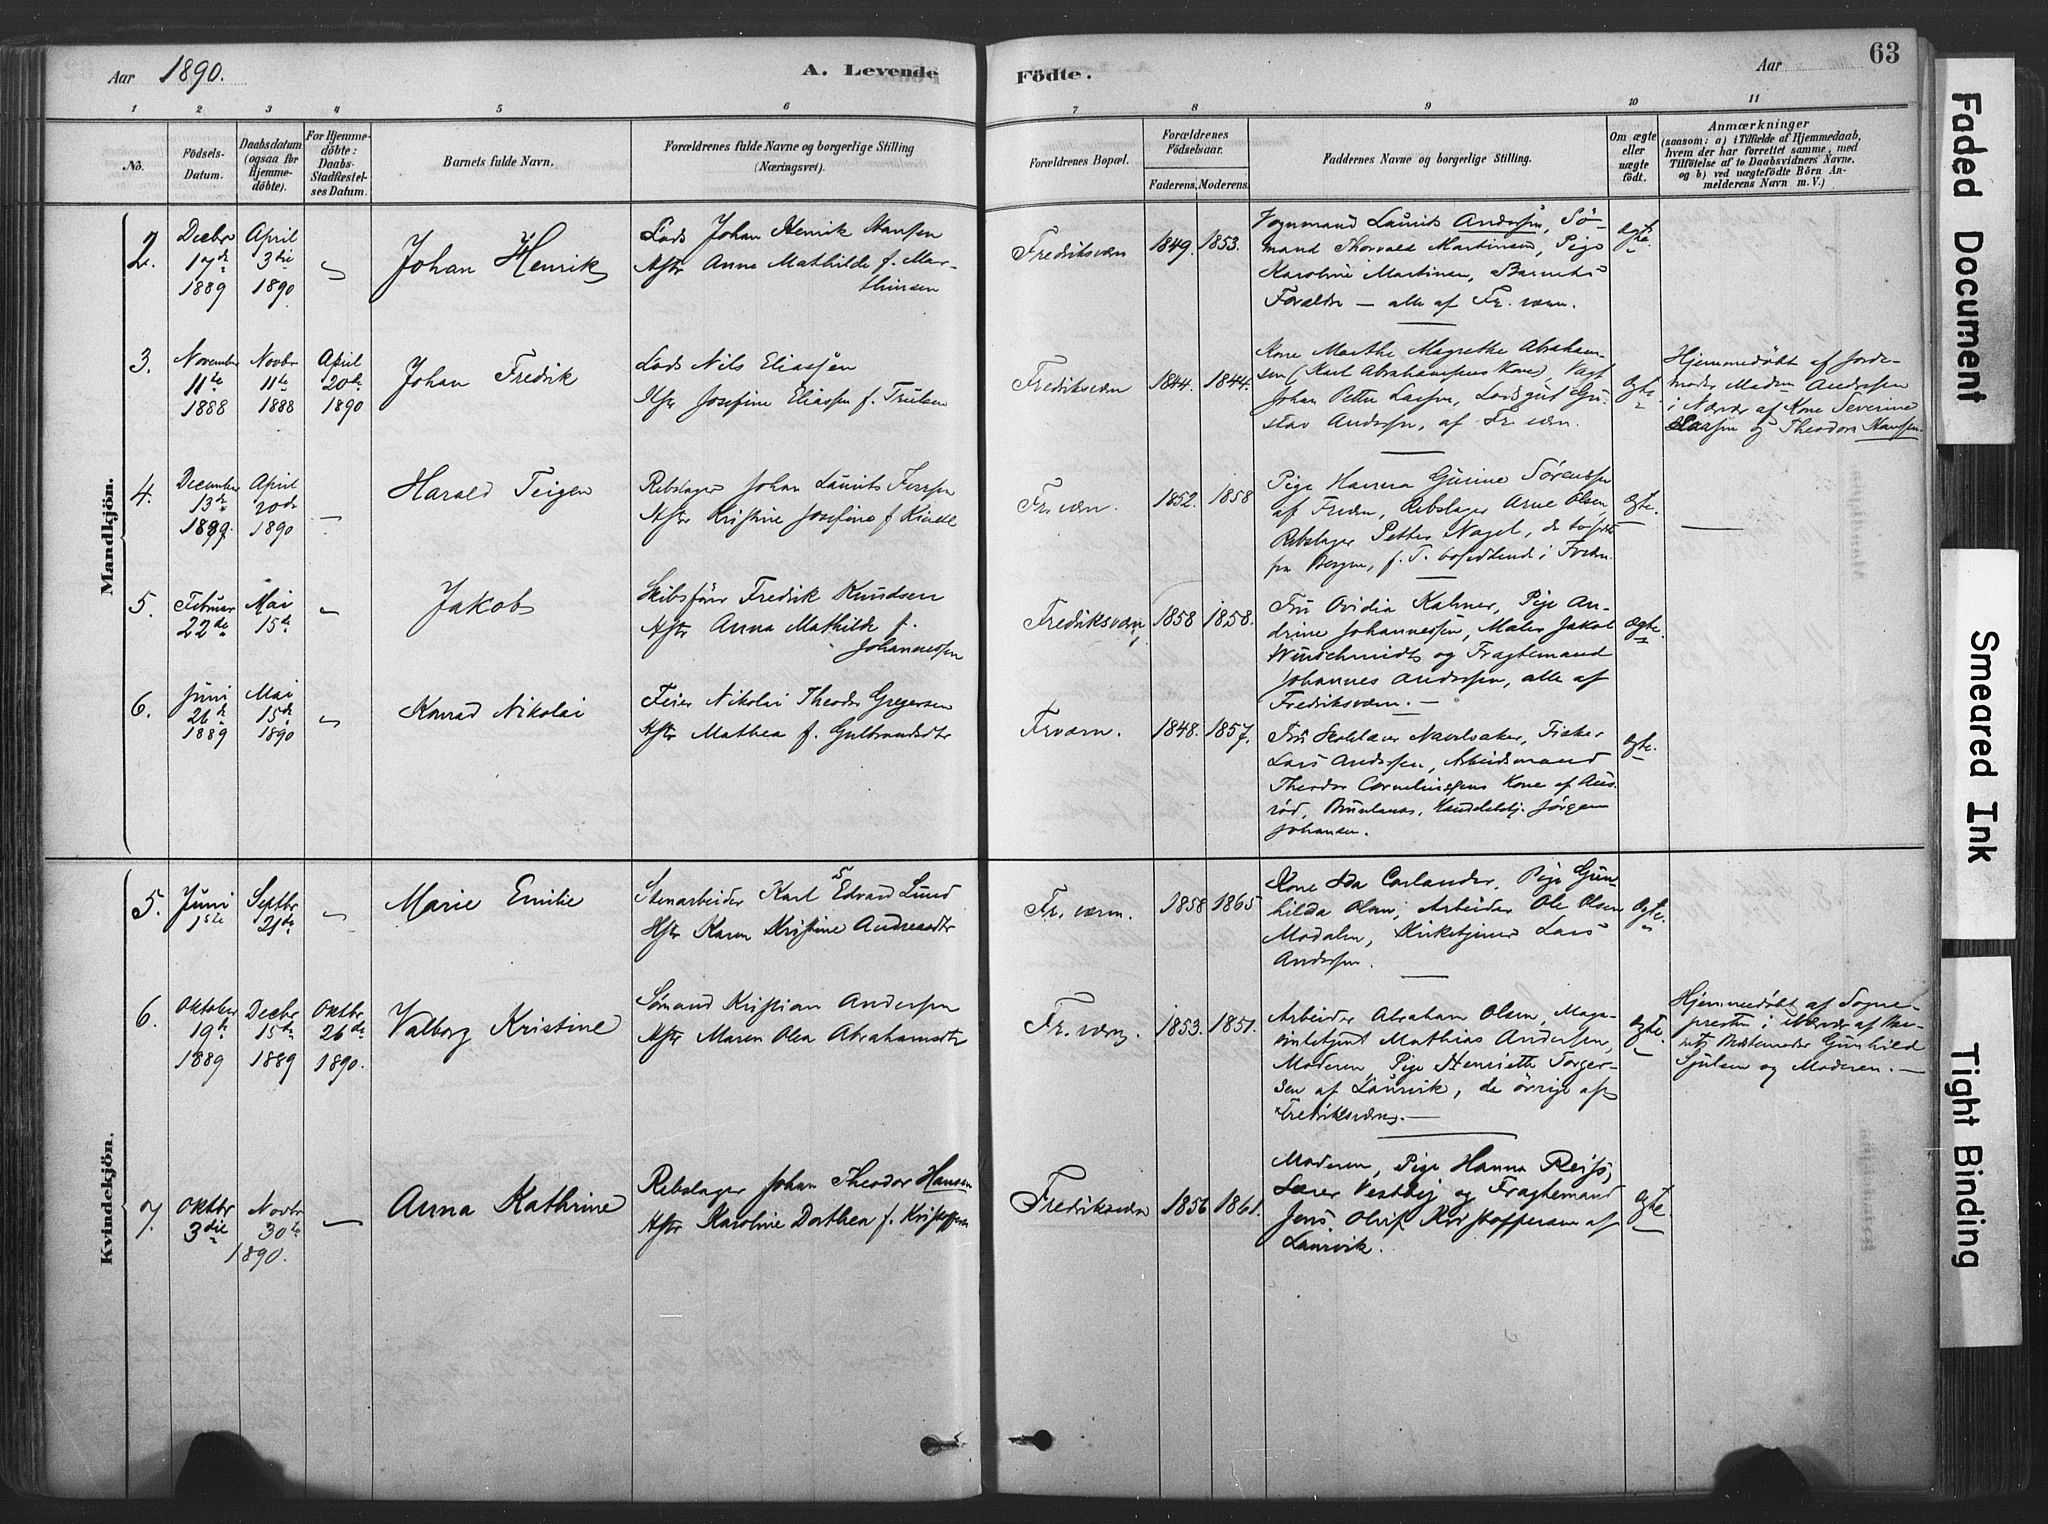 Aar 1890.
A. Levende
Födte.
Aar
63
1 2 3 4 5 6 7 8 9 10 11
No.
Födsels-
Datum.
Daabsdatum
(ogsaa for
Hjemme-
döbte).
For Hjemme-
döbte:
Daabs-
Stadfæstel-
ses Datum.
Barnets fulde Navn.
Forældrenes fulde Navne og borgerlige Stilling
(Næringsvei).
Forældrenes Bopæl.
Forældrenes
Födselsaar.
Faderens. Moderens.
Faddernes Navne og borgerlige Stilling.
Om ægte
eller
uægte
födt.
Anmærkninger
(saasom: a) i Tilfælde af Hjemmedaab,
hvem der har forrettet samme, med
Tilföielse af to Daabsvidners Navne.
og b) ved uægtefödte Börn An-
melderens Navn m. V.)
Mandkjön.
2.
Decbr
17de
1889
April
3die
1890
Johan Henrik
Lods Johan Henrik Hansen
Hstr Anna Mathilde f. Mar-
thinsen
Fredriksværn
1849. 1853.
Vognmand Laurits Andersen, Sö-
mand Thorvald Martinsen, Pige
Karoline Martinsen, Barnets
Forældre — alle af Fr.værn.
ægte
3.
November
11te
1888
Novbr
11te
1888
April
20de
1890
Johan Fredrik
Lods Nils Eliassen
Hstr Josefine Eliassen f. Trulsen
Fredriksværn
1844. 1844.
Kone Marthe Magrethe Abraham-
sen (Karl Abrahamsens Kone) Vagt
Johan Petter Larsen, Lodsgut Gu-
stav Andersen, af Fr.værn.
ægte
Hjemmedøbt af Jorde-
moder Madam Andersen
i Nærvær af Kone Severine
Larsen og Theodora Hansen.
4.
December
13de
1889.
April
20de
1890
Harald Teigen
Rebslager Johan Laurits
Hstr Kristine Josefine f.
Fr.værn.
1852. 1858
Pige Hanna Gurine Sørensen
af Frværn, Rebslager Arne Olsen,
Rebslager Petter Nagel, de to sidste
fra Bergen, f. T. bosiddende i Frværn
ægte.
5.
Februar
22de
Mai
15de
Jakob
Skibsfører Fredrik Knudsen
Hstr Anna Mathilde f.
Johannessen
Fredriksværn
1858 1858.
Fru Ovidia Kahner, Pige An-
drine Johannessen, Maler Jakob
Winschmidt og Fragtemand
Johannes Andersen, alle af
Fredriksværn.—
ægte.
6.
Juni
26de
1889
Mai
15de
1890
Konrad Nikolai
Feier Nikolai Theodor Gregersen
Hstr Mathea f. Gulbrandsdtr
Frværn.
1848. 1857.
Fru Navelsaker, Fisker
Lars Andersen, Arbeidsmand
Theodor Corneliussens Kone af
Brunlanæs, Handelsbtj. Jørgen
Johansen.
ægte.
Kvindekjön.
5.
Juni
1ste
Septbr
21de
Marie Emilie
Stenarbeider Karl Edvard Lund
Hstr Karen Kristine Andreasdtr
Fr. værn.
1858 1865
Kone Ida Carlander, Pige Gun-
hilda Olsen, Arbeider Ole Olsen
Modalen, Kirketjener Lars
Andersen.
ægte.
6.
Oktober
19de
1889
Decbr
15de
1889
Oktbr
26de
1890.
Valborg Kristine
Sømand Kristian Andersen
Hstr Maren Olea Abrahamsdtr
Fr. værn.
1853. 1851.
Arbeider Abraham Olsen, Maga-
sinbetjent Mathias Andersen,
Moderen, Pige Henriette Torger-
sen af Laurvik, de övrige af
Fredriksværn.—
ægte.
Hjemmedøbt af Sogne-
presten i Nærvær af Bar-
nets Bedstemoder Gunhild
og Moderen.—
7.
Oktbr
3die
Novbr
30te
1890.
Anna Kathrine
Rebslager Johan Theodor Hansen
Hstr Karoline Dorthea f. Kristoffersen
Fredriksværn
1856 1861.
Moderen, Pige Hanna Reiss,
Lærer Vestby og Fragtemand
Jens Oluf Kristoffersen af
Laurvik.
ægte
Faded Document
Smeared Ink
Tight Binding